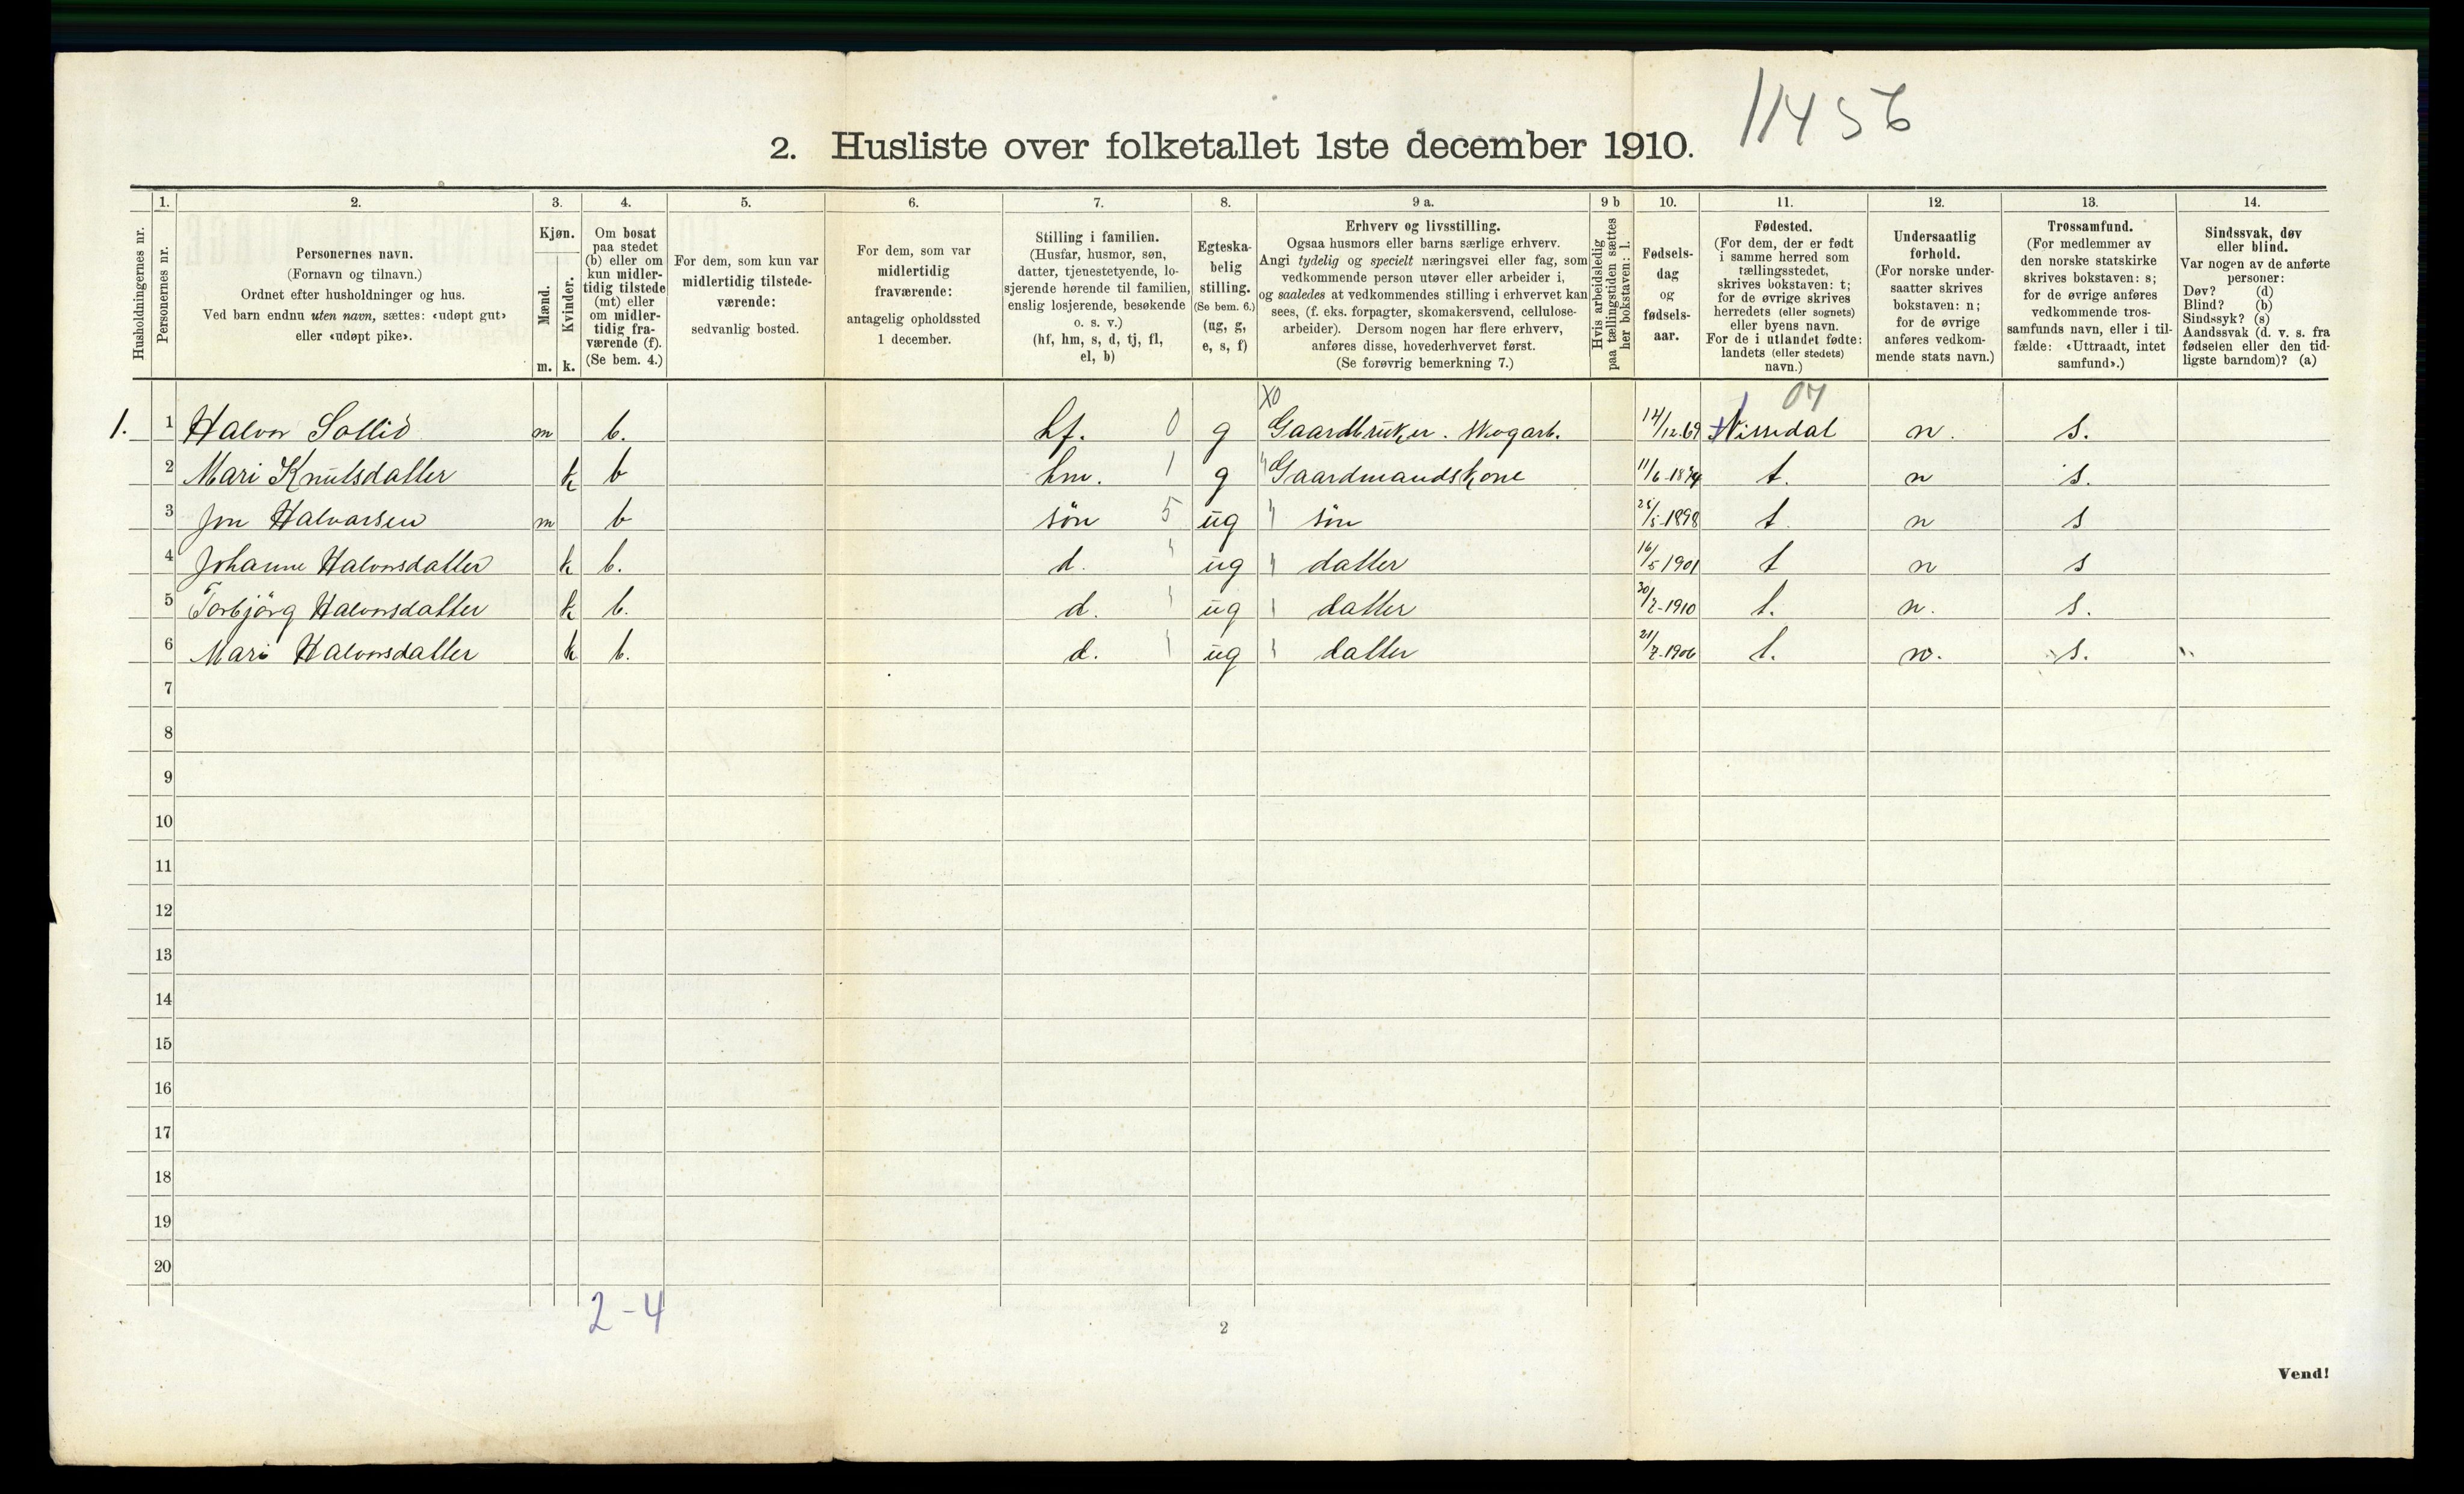 11456
2. Husliste over folketallet 1ste december 1910.
Husholdningernes nr.
1.
Personernes nr.
2.
Personernes navn.
(Fornavn og tilnavn.)
Ordnet efter husholdninger og hus.
Ved barn endnu uten navn, sættes: «udøpt gut»
eller «udøpt pike».
3.
Kjøn.
Mænd.
Kvinder.
m. k.
4.
Om bosat
paa stedet
(b) eller om
kun midler-
tidig tilstede
(mt) eller
om midler-
tidig fra-
værende (f).
(Se bem. 4.)
5.
For dem, som kun var
midlertidig tilstede-
værende:
sedvanlig bosted.
6.
For dem, som var
midlertidig
fraværende:
antagelig opholdssted
1 december.
7.
Stilling i familien.
(Husfar, husmor, søn,
datter, tjenestetyende, lo-
sjerende hørende til familien,
enslig losjerende, besøkende
o. s. v.)
(hf, hm, s, d, tj, fl,
el, b)
8.
Egteska-
belig
stilling.
(Se bem. 6.)
(ug, g,
e, s, f)
9 a.
Erhverv og livsstilling.
Ogsaa husmors eller barns særlige erhverv.
Angi tydelig og specielt næringsvei eller fag, som
vedkommende person utøver eller arbeider i,
og saaledes at vedkommendes stilling i erhvervet kan
sees, (f. eks. forpagter, skomakersvend, cellulose-
arbeider). Dersom nogen har flere erhverv,
anføres disse, hovederhvervet først.
(Se forøvrig bemerkning 7.)
9 b
Hvis arbeidsledig
paa tællingstiden sættes
her bokstaven: l.
10.
Fødsels-
dag
og
fødsels-
aar.
11.
Fødested.
(For dem, der er født
i samme herred som
tællingsstedet,
skrives bokstaven: t;
for de øvrige skrives
herredets (eller sognets)
eller byens navn.
For de i utlandet fødte:
landets (eller stedets)
navn.)
12.
Undersaatlig
forhold.
(For norske under-
saatter skrives
bokstaven: n;
for de øvrige
anføres vedkom-
mende stats navn.)
13.
Trossamfund.
(For medlemmer av
den norske statskirke
skrives bokstaven: s;
for de øvrige anføres
vedkommende tros-
samfunds navn, eller i til-
fælde: «Uttraadt, intet
samfund».)
14.
Sindssvak, døv
eller blind.
Var nogen av de anførte
personer:
Døv? (d)
Blind? (b)
Sindssyk? (s)
Aandssvak (d. v. s. fra
fødselen eller den tid-
ligste barndom)? (a)
XO 07
1. 1 Halvor Sollid m b. hf. 0 g Gaardbruker. skogarb. 14/12.69 Nissedal n. s.
2 Mari Knutsdatter k b hm. 1 g Gaardmandskone 11/6-1874 t. n s.
3 Jon Halvorsen m b søn 5 ug søn 25/5-1898 t n s
4 Johanne Halvorsdatter k b. d. ug datter 16/5 1901 t n s
5 Torbjörg Halvorsdatter k b. d. ug datter 30/7-1910 t. n. s.
6 Mari Halvorsdatter k b. d. ug datter 21/7-1906 t. n. s.
7
8
9
10
11
12
13
14
15
16
17
18
19
20
2-4
2
Vend!